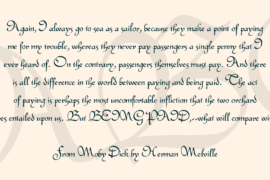 Again, I always go to sea as a sailor, because they make a point of paying
me for my trouble, whereas they never pay passengers a single penny that I
ever heard of. On the contrary, passengers themselves must pay. And there
is all the difference in the world between paying and being paid. The act
of paying is perhaps the most uncomfortable infliction that the two orchard
es entailed upon us. But BEING PAID,--what will compare wi
From Moby Dick by Herman Melville